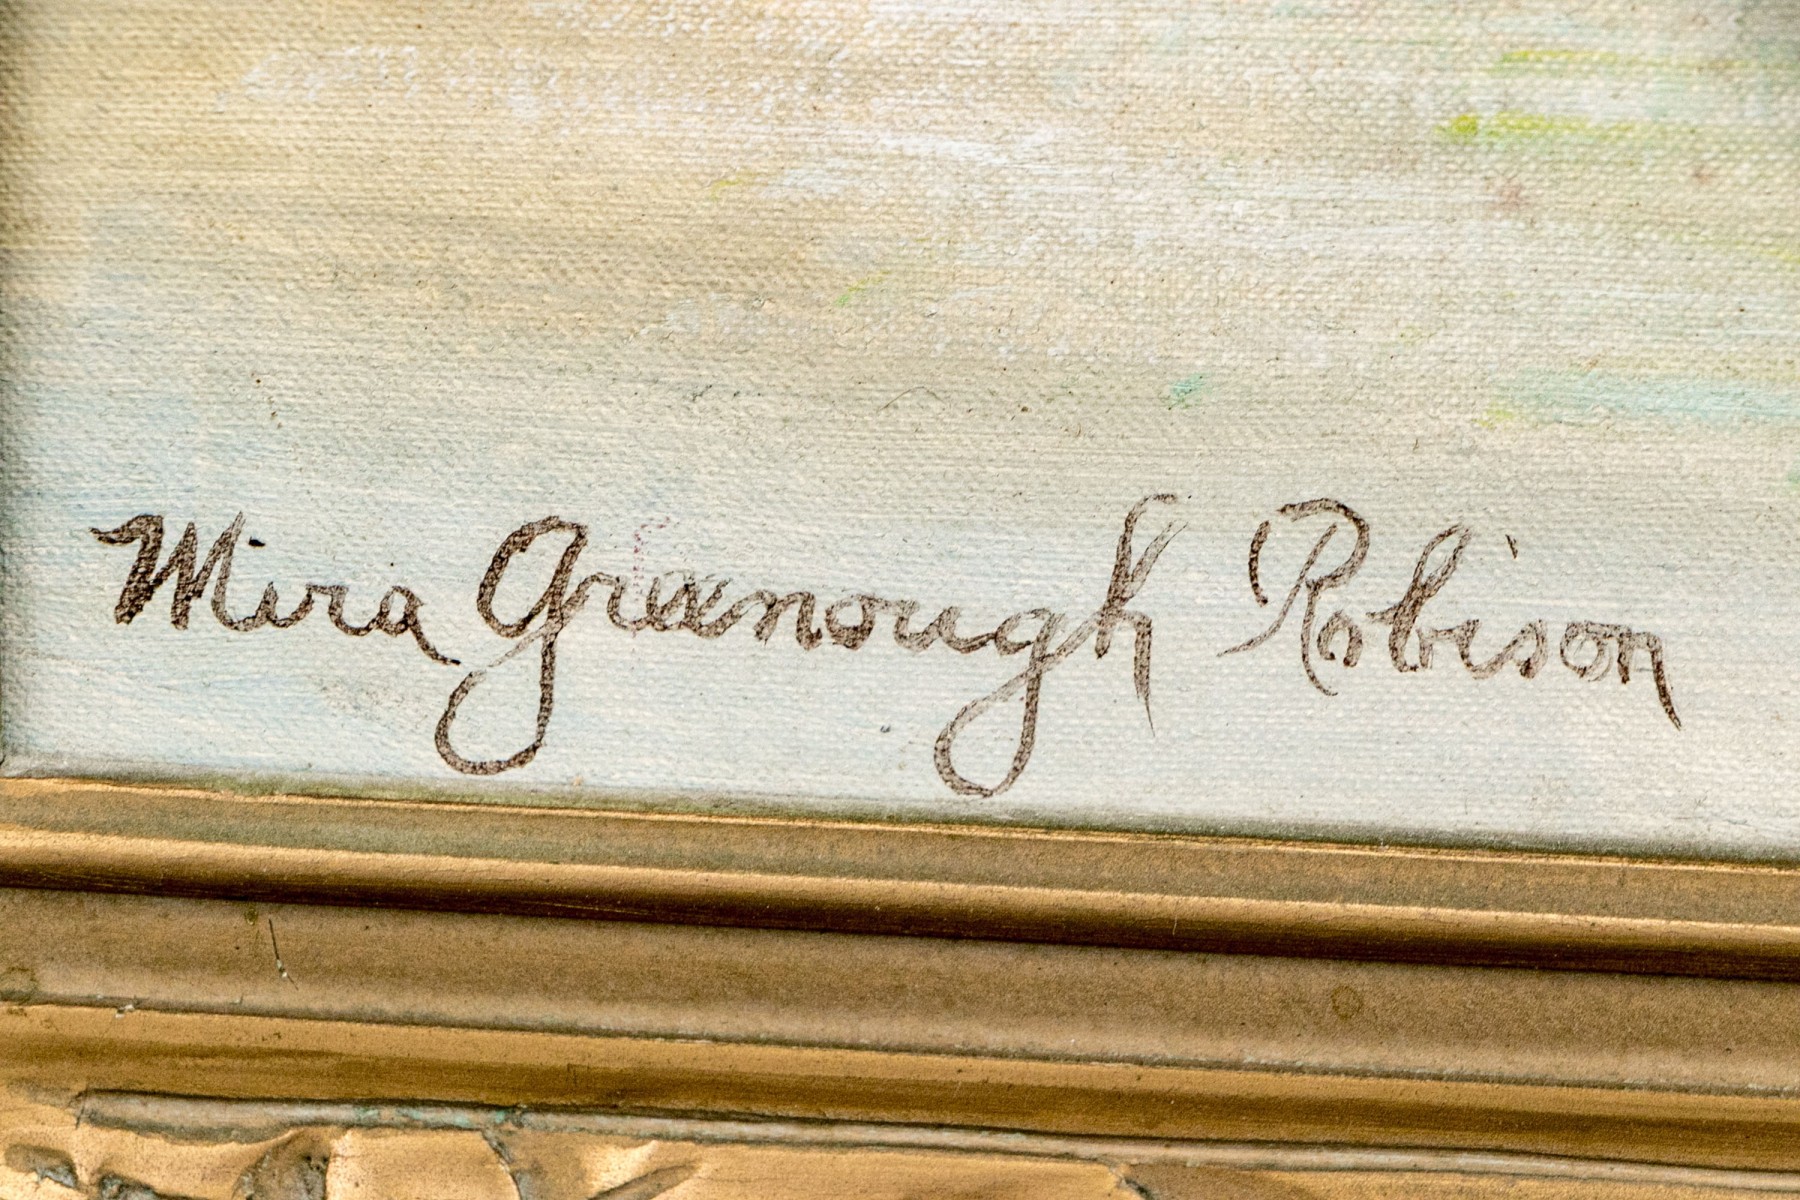 Mira Greenough Robison